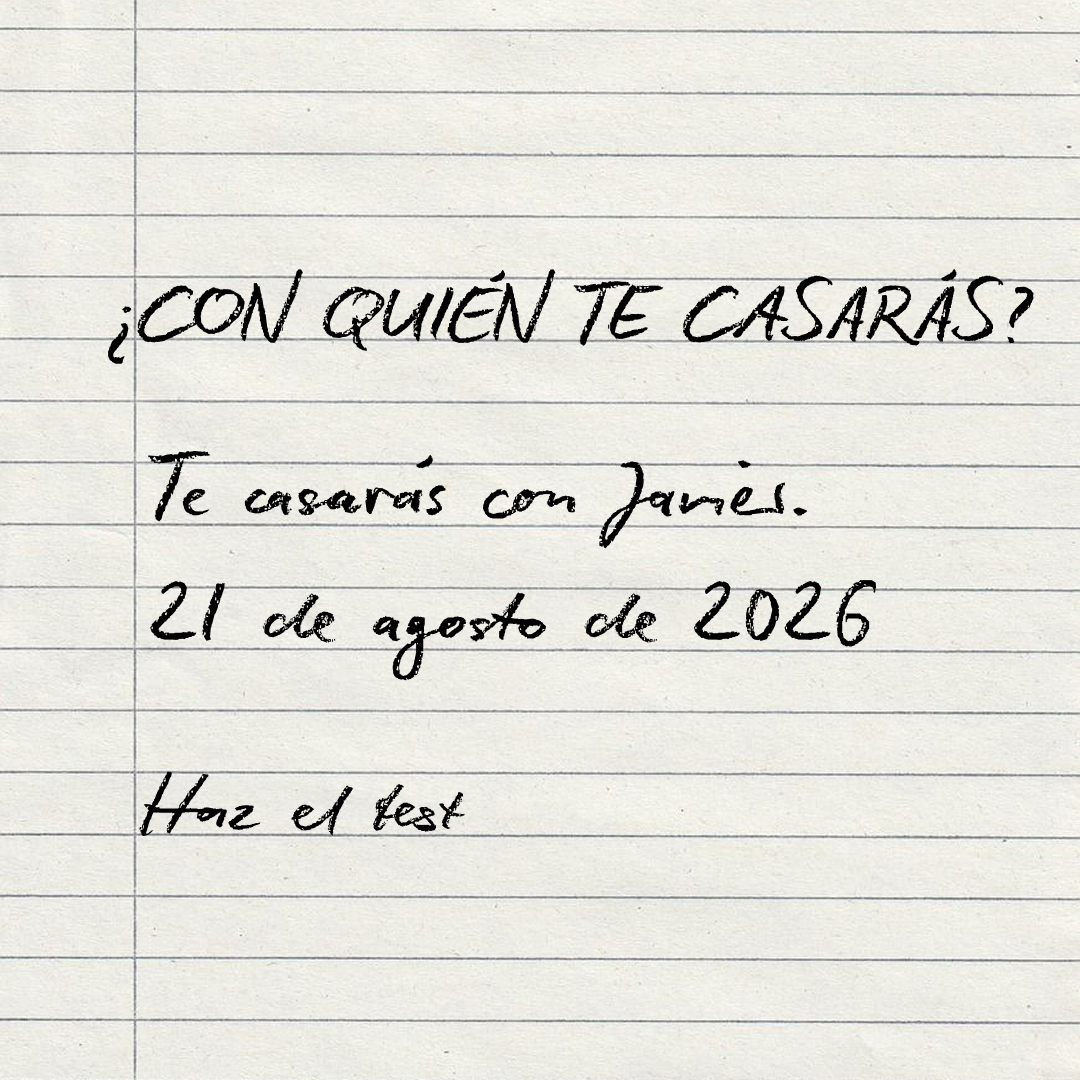 ¿CON QUIÉN TE CASARÁS?
Te casarás con Javier.
21 de agosto de 2026
Haz el test